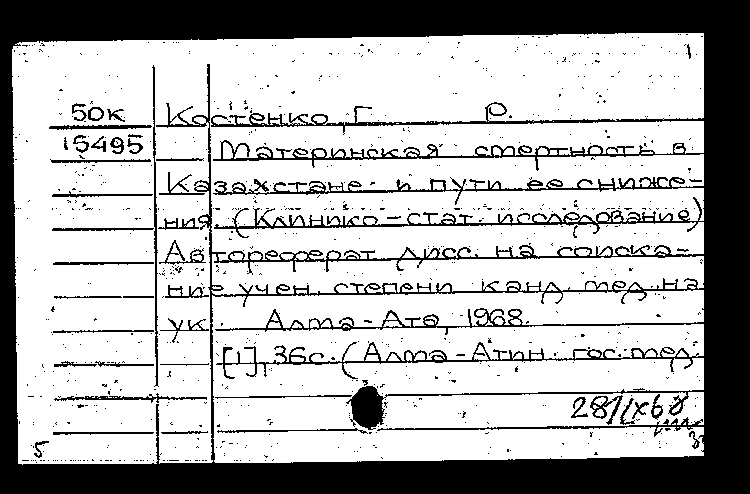 1
50к Костенко, Г Р.
15495 Материнская смертность в
Казахстане и пути ее сниже-
ния. (Клинико-стат. исследование)
Автореферат дисс. на соиска-
ние учен. степени канд. мед. на
ук. Алма-Ата, 1968.
[1], 36с. (Алма-Атин. гос. мед.
28/IX68
5